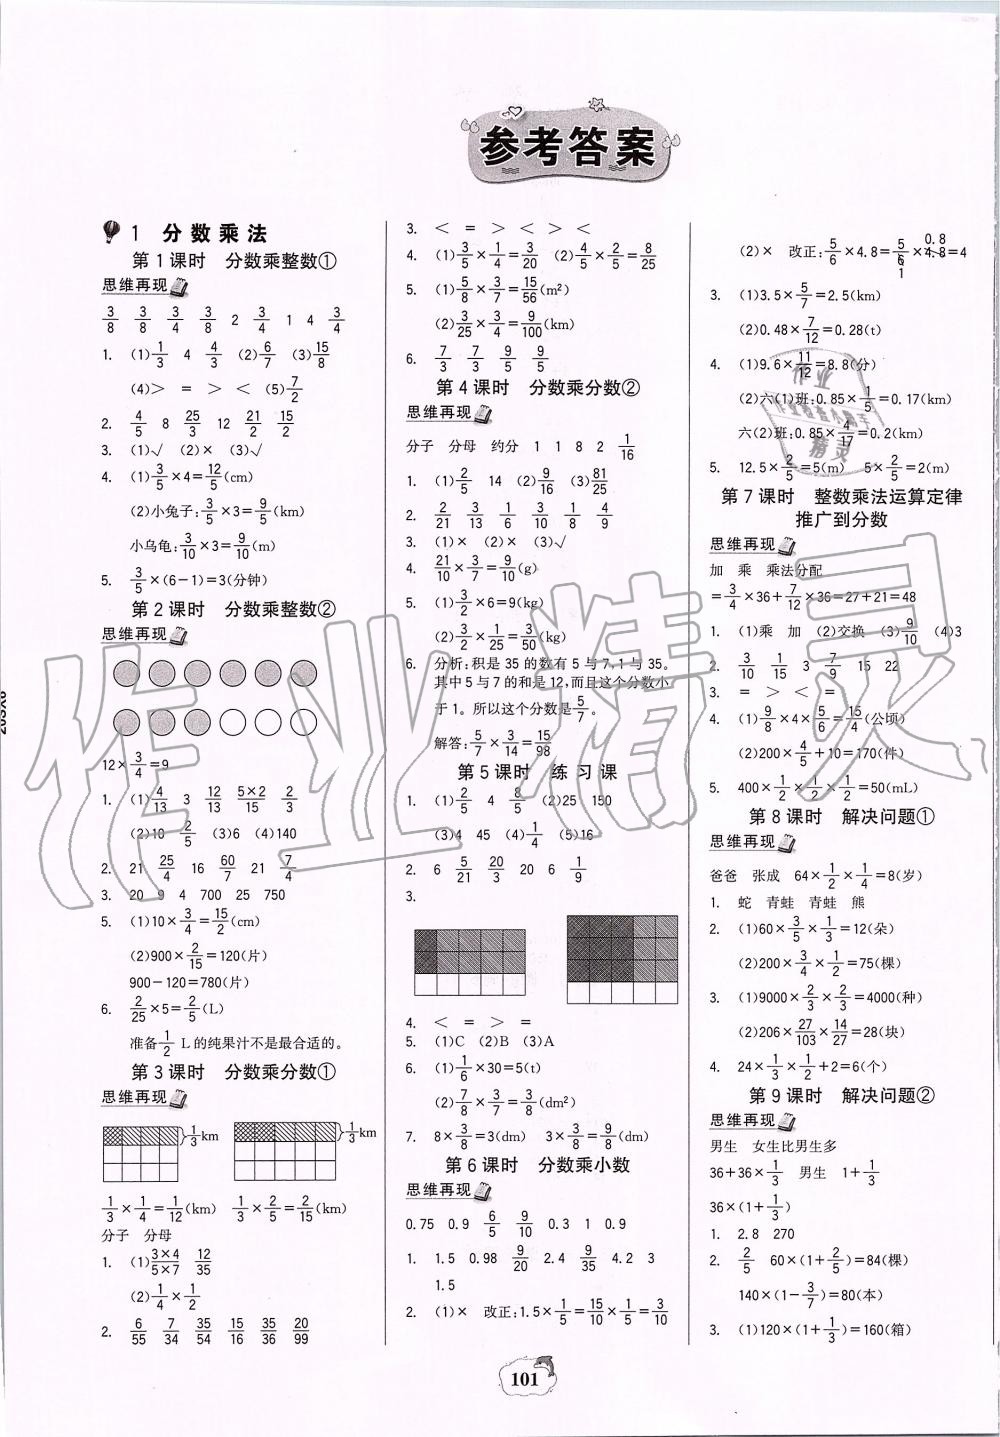 参考答案
1 分数乘法
第1课时 分数乘整数①
思维再现
3/8 3/8 3/4 3/8 2 3/4 1 4 3/4
1. (1)1/3 4 4/3 (2)6/7 (3)15/8
(4)> = > < (5)7/2
2. 4/5 8 25/3 12 21/2 15/2
3. (1)√ (2)× (3)√
4. (1)3/5×4=12/5(cm)
(2)小兔子:3/5×3=9/5(km)
小乌龟:3/10×3=9/10(m)
5. 3/5×(6-1)=3(分钟)
第2课时 分数乘整数②
思维再现
12×3/4=9
1. (1)4/13 3 12/13 5×2/15 2/3
(2)10 2/5 (3)6 (4)140
2. 21 25/4 16 60/7 21 7/4
3. 20 9 4 700 25 750
5. (1)10×3/4=15/2(cm)
(2)900×2/15=120(片)
900-120=780(片)
6. 2/25×5=2/5(L)
准备1/2 L的纯果汁不是最合适的。
第3课时 分数乘分数①
思维再现
1/3km 1/3km
1/3×1/4=1/12(km) 1/3×2/5=2/15(km)
分子 分母
1. (1)3×4/5×7 12/35
(2)1/4×1/2
2. 6/55 7/34 35/54 15/16 35/36 20/99
3. < = > < > <
4. (1)3/5×1/4=3/20 (2)4/5×2/5=8/25
5. (1)5/8×3/7=15/56(m²)
(2)3/25×3/4=9/100(km)
6. 7/3 7/3 9/5 9/5
第4课时 分数乘分数②
思维再现
分子 分母 约分 1 1 8 2 1/16
1. (1)2/5 14 (2)9/16 (3)81/25
2. 2/21 3/13 1/6 3/10 1/8 4/9
3. (1)× (2)× (3)√
4. 21/10×3/7=9/10(g)
5. (1)3/2×6=9(kg)
(2)3/2×1/25=3/50(kg)
6. 分析:积是35的数有5与7,1与35。
其中5与7的和是12,而且这个分数小
于1。所以这个分数是5/7。
解答:5/7×3/14=15/98
第5课时 练习课
1. (1)2/5 4 8/5 (2)25 150
(3)4 45 (4)1/4 (5)16
2. 6 5/21 20/3 20 6 1/9
3.
4. < = > =
5. (1)C (2)B (3)A
6. (1)1/6×30=5(t)
(2)7/8×3/7=3/8(dm²)
7. 8×3/8=3(dm) 3×3/8=9/8(dm)
第6课时 分数乘小数
思维再现
0.75 0.9 6/5 9/10 0.3 1 0.9
1. 1.5 0.98 9/20 2.4 9/35 4.2 3
1.5
2. (1)× 改正:1.5×1/5=15/10×1/5=3/10
(2)× 改正:5/6×4.8=5/6×4.8=4
0.8
1
3. (1)3.5×5/7=2.5(km)
(2)0.48×7/12=0.28(t)
4. (1)9.6×11/12=8.8(分)
(2)六(1)班:0.85×1/5=0.17(km)
六(2)班:0.85×4/17=0.2(km)
5. 12.5×2/5=5(m) 5×2/5=2(m)
第7课时 整数乘法运算定律
推广到分数
思维再现
加 乘 乘法分配
=3/4×36+7/12×36=27+21=48
1. (1)乘 加 (2)交换 (3)9/10 (4)3
2. 3/10 1/15 3 7/9 15 22
3. = > < =
4. (1)9/8×4×5/6=15/4(公顷)
(2)200×4/5+10=170(件)
5. 400×1/2×1/2×1/2=50(mL)
第8课时 解决问题①
思维再现
爸爸 张成 64×1/2×1/4=8(岁)
1. 蛇 青蛙 青蛙 熊
2. (1)60×3/5×1/3=12(朵)
(2)200×3/4×1/2=75(棵)
3. (1)9000×2/3×2/3=4000(种)
(2)206×27/103×14/27=28(块)
4. 24×1/3×1/2+2=6(个)
第9课时 解决问题②
思维再现
男生 女生比男生多
36+36×1/3 男生 1+1/3
36×(1+1/3)
1. 2.8 270
2. 2/5 60×(1+2/5)=84(棵)
140×(1-3/7)=80(本)
3. (1)120×(1+1/3)=160(箱)
101
作业精灵